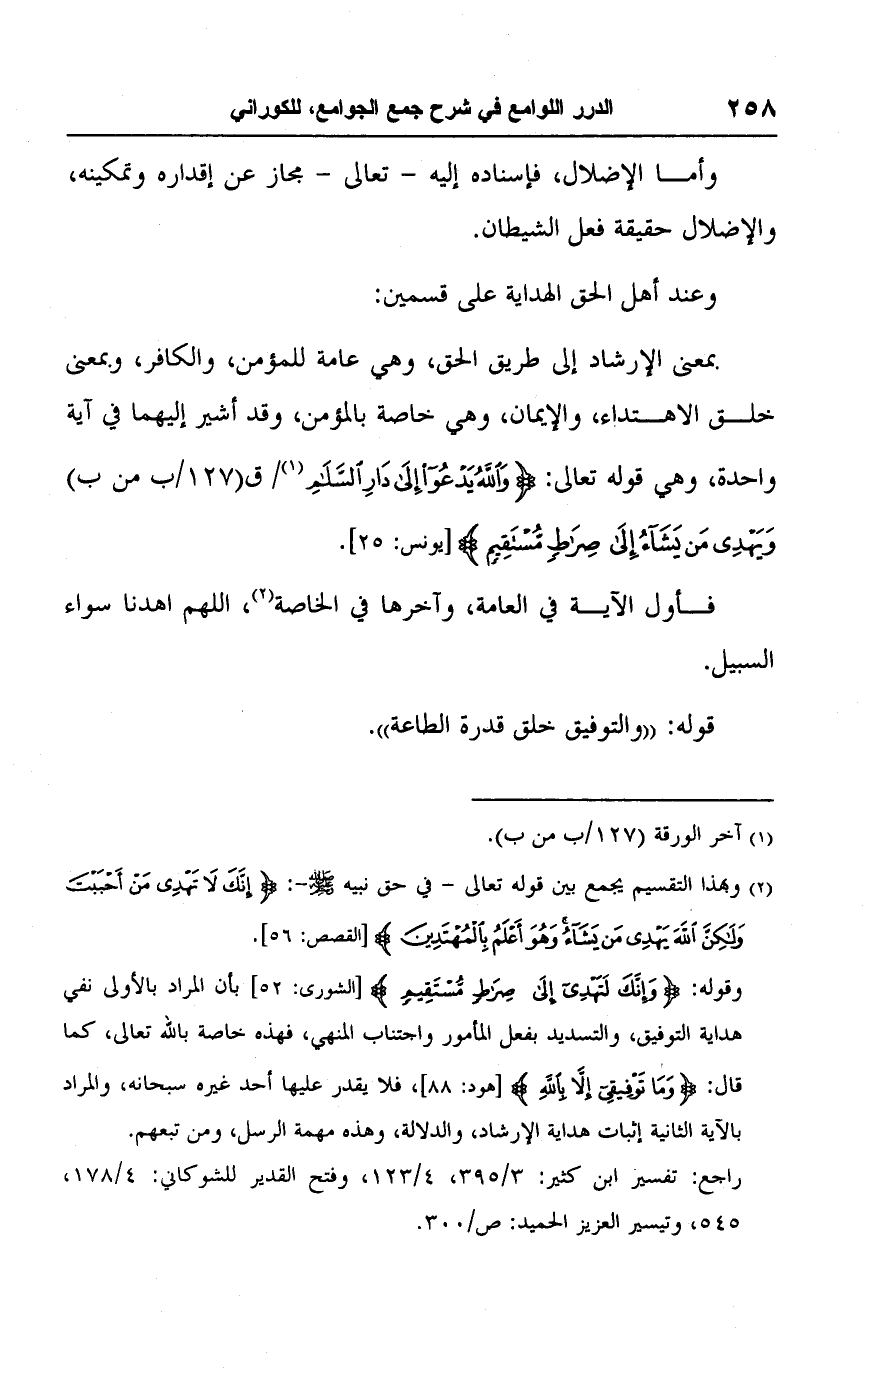 ٢٥٨ الدرر اللوامع في شرح جمع الجوامع، للكوراني
وأمــا الإضلال، فإسناده إليه – تعالى – مجاز عن إقداره وتمكينه،
والإضلال حقيقة فعل الشيطان.
وعند أهل الحق الهداية على قسمين:
بمعنى الإرشاد إلى طريق الحق، وهي عامة للمؤمن، والكافر، وبمعنى
خلــق الاهــتداء، والإيمان، وهي خاصة بالمؤمن، وقد أشير إليهما في آية
واحدة، وهي قوله تعالى: ﴿ وَٱللَّهُ يَدْعُوٓا۟ إِلَىٰ دَارِ ٱلسَّلَـٰمِ (١)/ ق(١٢٧/ب من ب)
وَيَهْدِى مَن يَشَآءُ إِلَىٰ صِرَٰطٍ مُّسْتَقِيمٍ ﴾ [يونس: ٢٥].
فــأول الآيــة في العامة، وآخرها في الخاصة(٢)، اللهم اهدنا سواء
السبيل.
قوله: ((والتوفيق خلق قدرة الطاعة)).
(١) آخر الورقة (١٢٧/ب من ب).
(٢) وبهذا التقسيم يجمع بين قوله تعالى – في حق نبيه ﷺ–: ﴿ إِنَّكَ لَا تَهْدِى مَنْ أَحْبَبْتَ
وَلَـٰكِنَّ ٱللَّهَ يَهْدِى مَن يَشَآءُ ۚ وَهُوَ أَعْلَمُ بِٱلْمُهْتَدِينَ ﴾ [القصص: ٥٦].
وقوله: ﴿ وَإِنَّكَ لَتَهْدِىٓ إِلَىٰ صِرَٰطٍ مُّسْتَقِيمٍ ﴾ [الشورى: ٥٢] بأن المراد بالأولى نفي
هداية التوفيق، والتسديد بفعل المأمور واجتناب المنهي، فهذه خاصة بالله تعالى، كما
قال: ﴿ وَمَا تَوْفِيقِىٓ إِلَّا بِٱللَّهِ ﴾ [هود: ٨٨]، فلا يقدر عليها أحد غيره سبحانه، والمراد
بالآية الثانية إثبات هداية الإرشاد، والدلالة، وهذه مهمة الرسل، ومن تبعهم.
راجع: تفسير ابن كثير: ٣٩٥/٣، ١٢٣/٤، وفتح القدير للشوكاني: ١٧٨/٤،
٥٤٥، وتيسير العزيز الحميد: ص/٣٠٠.